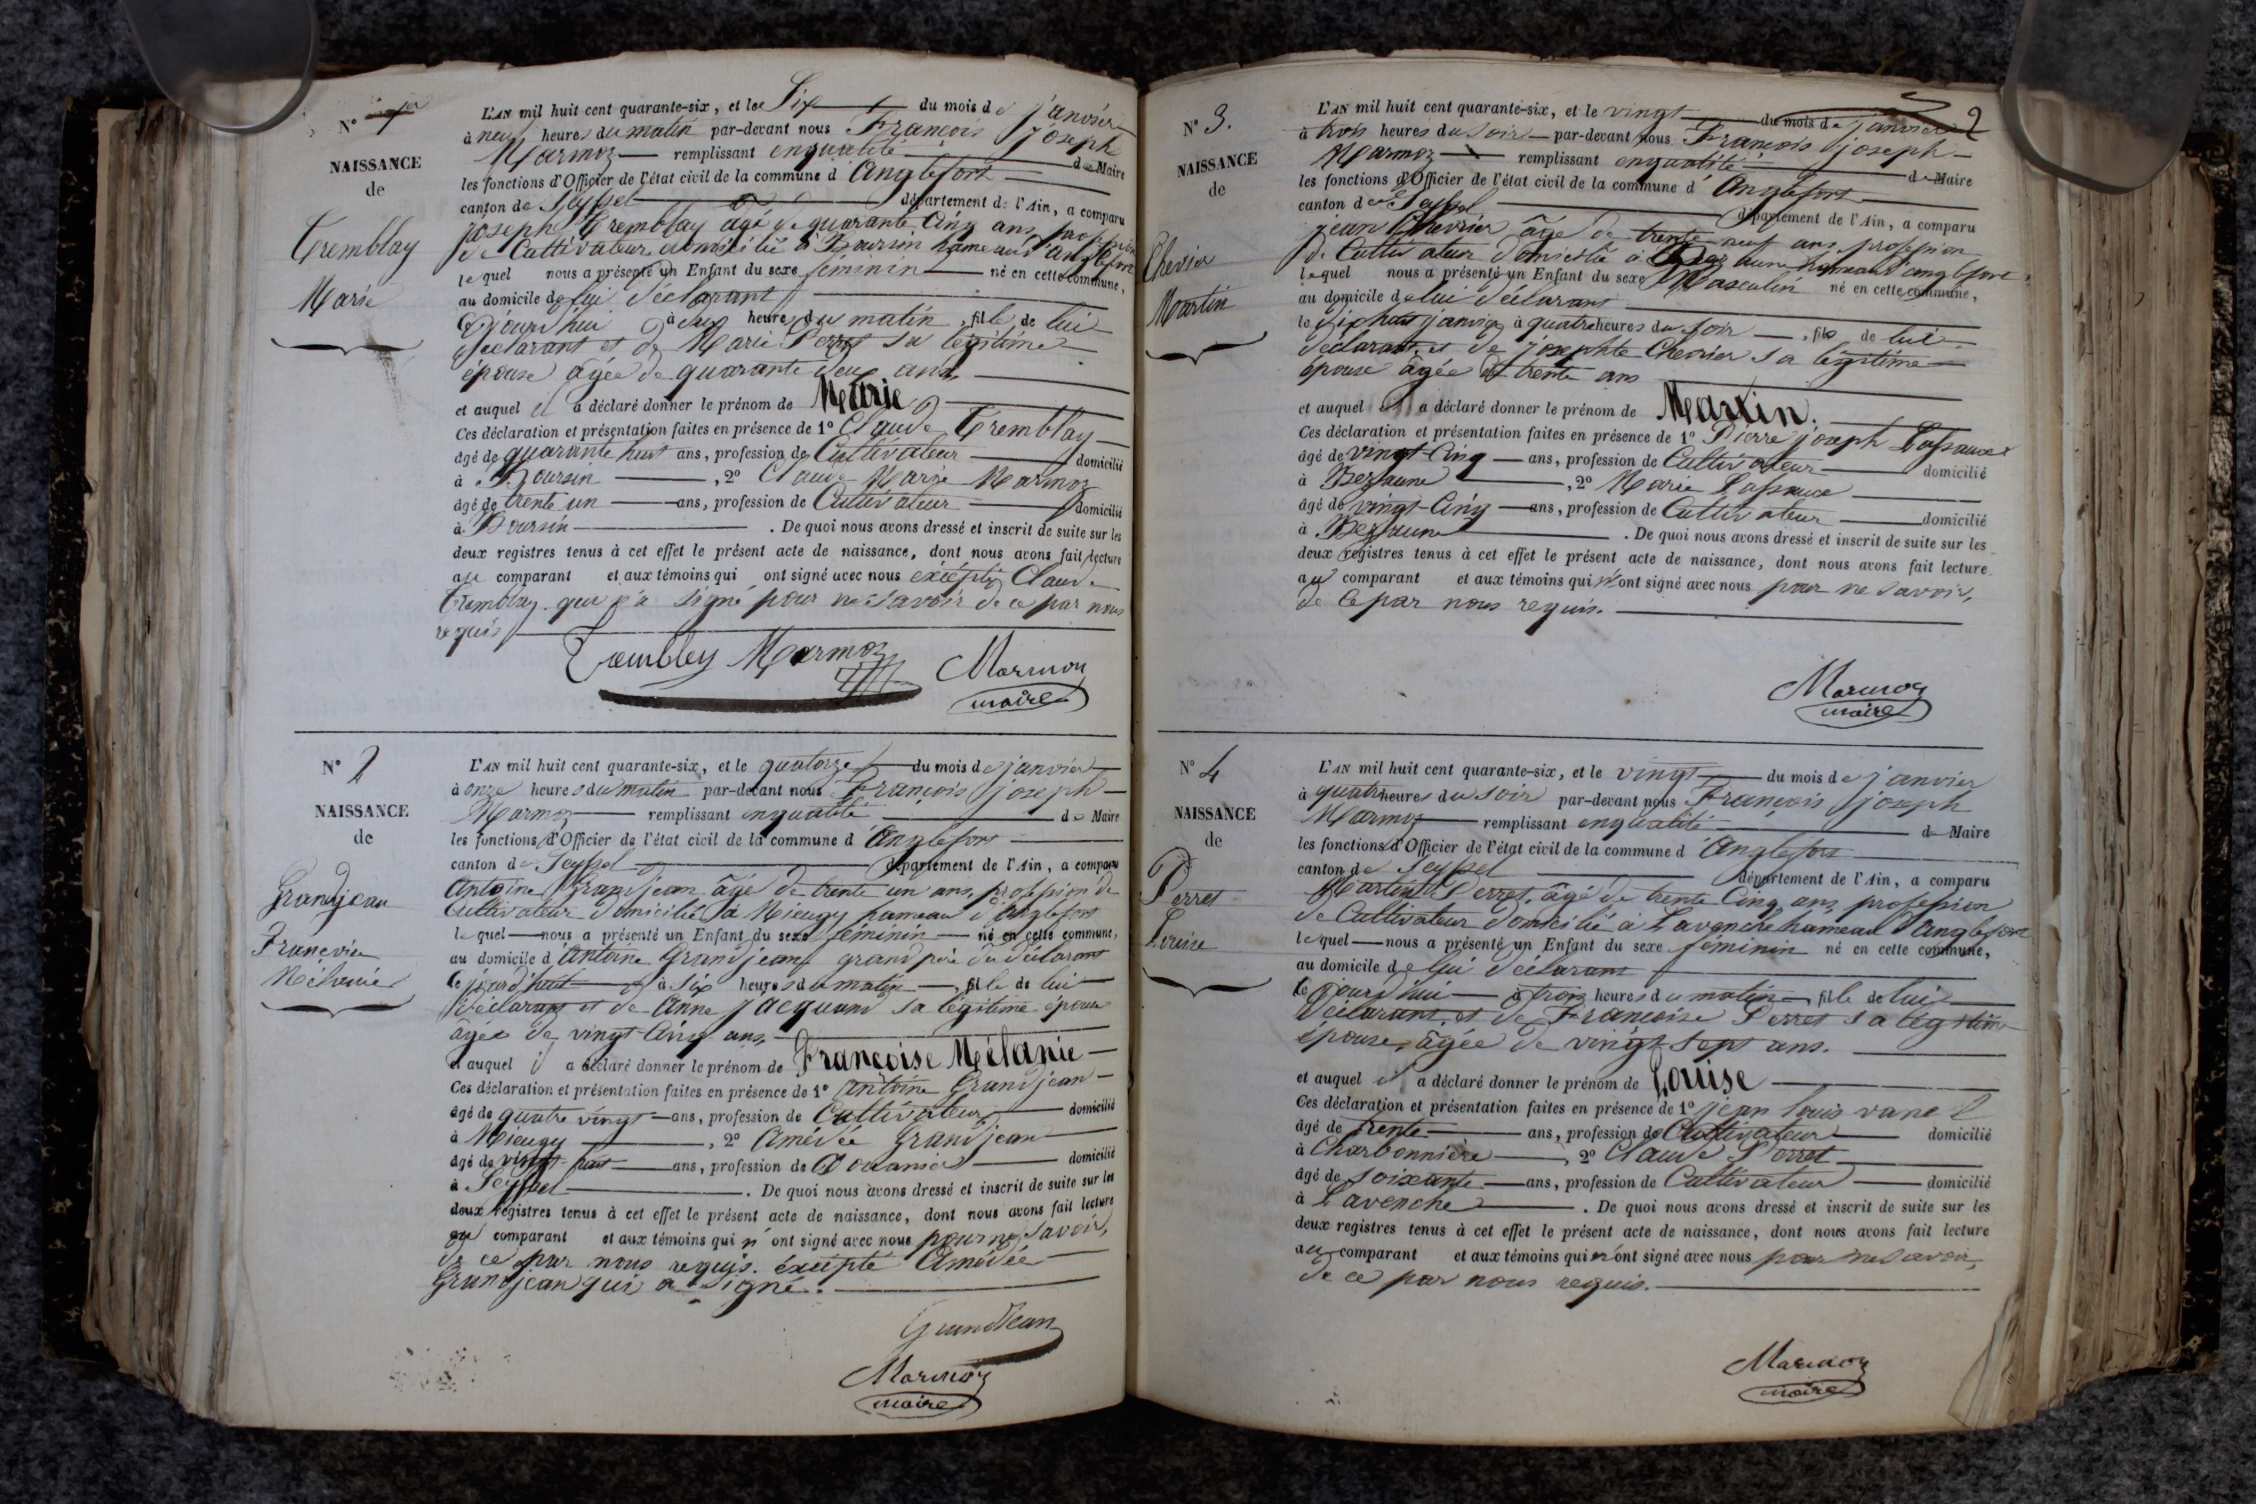 N° 1er
NAISSANCE
de
Tremblay
Marie
L'AN mil huit cent quarante-six, et le Six du mois de janvier
à neuf heures du matin par-devant nous François Joseph
Marmoz remplissant enqualité de Maire
les fonctions d'Officier de l'état civil de la commune d'Anglefort
canton de Seyssel département de l'Ain, a comparu
joseph Tremblay âgé de quarante Cinq ans, profession
de Cultivateur domicilié à Boursin hameau d'anglefort
lequel nous a présenté un Enfant du sexe féminin né en cette commune,
au domicile de lui déclarant
Cejourd'hui à heure du matin, fille de lui
déclarant et de Marie Perret sa légitime
épouse âgée de quarante deux ans,
et auquel il a déclaré donner le prénom de Marie
Ces déclaration et présentation faites en présence de 1° Claude Tremblay
âgé de quarante huit ans, profession de Cultivateur domicilié
à Boursin, 2° Claude Marie Marmoz
âgé de trente un ans, profession de Cultivateur domicilié
à Boursin. De quoi nous avons dressé et inscrit de suite sur les
deux registres tenus à cet effet le présent acte de naissance, dont nous avons fait lecture
au comparant et aux témoins qui ont signé avec nous excépté Claude
Tremblay qui n'a signé pour ne savoir de ce par nous
requis
Trembley Marmoz Marmoz
maire
N° 2
NAISSANCE
de
Grandjean
Françoise
Mélanie
L'AN mil huit cent quarante-six, et le quatorze du mois de janvier
à onze heures du matin par-devant nous François joseph
Marmoz remplissant enqualité de Maire
les fonctions d'Officier de l'état civil de la commune d'Anglefort
canton de Seyssel département de l'Ain, a comparu
Antoine Grandjean âgé de trente un ans, profession de
Cultivateur domicilié à Mieugy hameau d'Anglefort
lequel nous a présenté un Enfant du sexe féminin né en cette commune,
au domicile d'Antoine Grandjean grand père du déclarant
Cejourd'hui à six heures du matin, fille de lui
déclarant et de Anne jacquand sa légitime épouse
âgée de vingt Cinq ans,
et auquel il a déclaré donner le prénom de Françoise Mélanie
Ces déclaration et présentation faites en présence de 1° Antoine Grandjean
âgé de quatre vingt ans, profession de Cultivateur domicilié
à Mieugy, 2° Amédée Grandjean
âgé de vingt huit ans, profession de Douanier domicilié
à Seyssel. De quoi nous avons dressé et inscrit de suite sur les
deux registres tenus à cet effet le présent acte de naissance, dont nous avons fait lecture
au comparant et aux témoins qui n'ont signé avec nous pour ne savoir,
de ce par nous requis. éxcépté Amédée
Grandjean qui a signé.
GrandJean
Marmoz
maire
2
N° 3.
NAISSANCE
de
Chevrier
Martin
L'AN mil huit cent quarante-six, et le vingt du mois de janvier
à trois heures du soir par-devant nous François joseph
Marmoz remplissant enqualité de Maire
les fonctions d'Officier de l'état civil de la commune d'Anglefort
canton de Seyssel département de l'Ain, a comparu
jean Chevrier âgé de trente neuf ans, profession
de Cultivateur domicilié à Bezaune hameau d'anglefort
lequel nous a présenté un Enfant du sexe Masculin né en cette commune,
au domicile de lui déclarant
le dix huit janvier à quatre heures du soir, fils de lui
déclarant, et de josephte Chevrier sa légitime
épouse âgée de trente ans
et auquel il a déclaré donner le prénom de Martin.
Ces déclaration et présentation faites en présence de 1° Pierre joseph Lassauce
âgé de vingt-Cinq ans, profession de Cultivateur domicilié
à Bezaune, 2° Marie Lassauce
âgé de vingt-Cinq ans, profession de Cultivateur domicilié
à Bezaune. De quoi nous avons dressé et inscrit de suite sur les
deux registres tenus à cet effet le présent acte de naissance, dont nous avons fait lecture
au comparant et aux témoins qui n'ont signé avec nous pour ne savoir,
de ce par nous requis.
Marmoz
maire
N° 4
NAISSANCE
de
Perret
Louise
L'AN mil huit cent quarante-six, et le vingt du mois de janvier
à quatre heures du soir par-devant nous François joseph
Marmoz remplissant enqualité de Maire
les fonctions d'Officier de l'état civil de la commune d'Anglefort
canton de Seyssel département de l'Ain, a comparu
Martin Perret, âgé de trente Cinq ans, profession
de Cultivateur domicilié à Lavanche hameau d'anglefort
lequel nous a présenté un Enfant du sexe féminin né en cette commune,
au domicile de lui déclarant
Cejourd'hui à trois heures du matin, fille de lui
déclarant, et de Françoise Perret sa légitime
épouse, âgée de vingt-sept ans.
et auquel il a déclaré donner le prénom de Louise
Ces déclaration et présentation faites en présence de 1° jean louis
âgé de trente ans, profession de Cultivateur domicilié
à Charbonnière, 2° Claude Perret
âgé de soixante ans, profession de Cultivateur domicilié
à Lavenche. De quoi nous avons dressé et inscrit de suite sur les
deux registres tenus à cet effet le présent acte de naissance, dont nous avons fait lecture
au comparant et aux témoins qui n'ont signé avec nous pour ne savoir,
de ce par nous requis.
Marmoz
maire